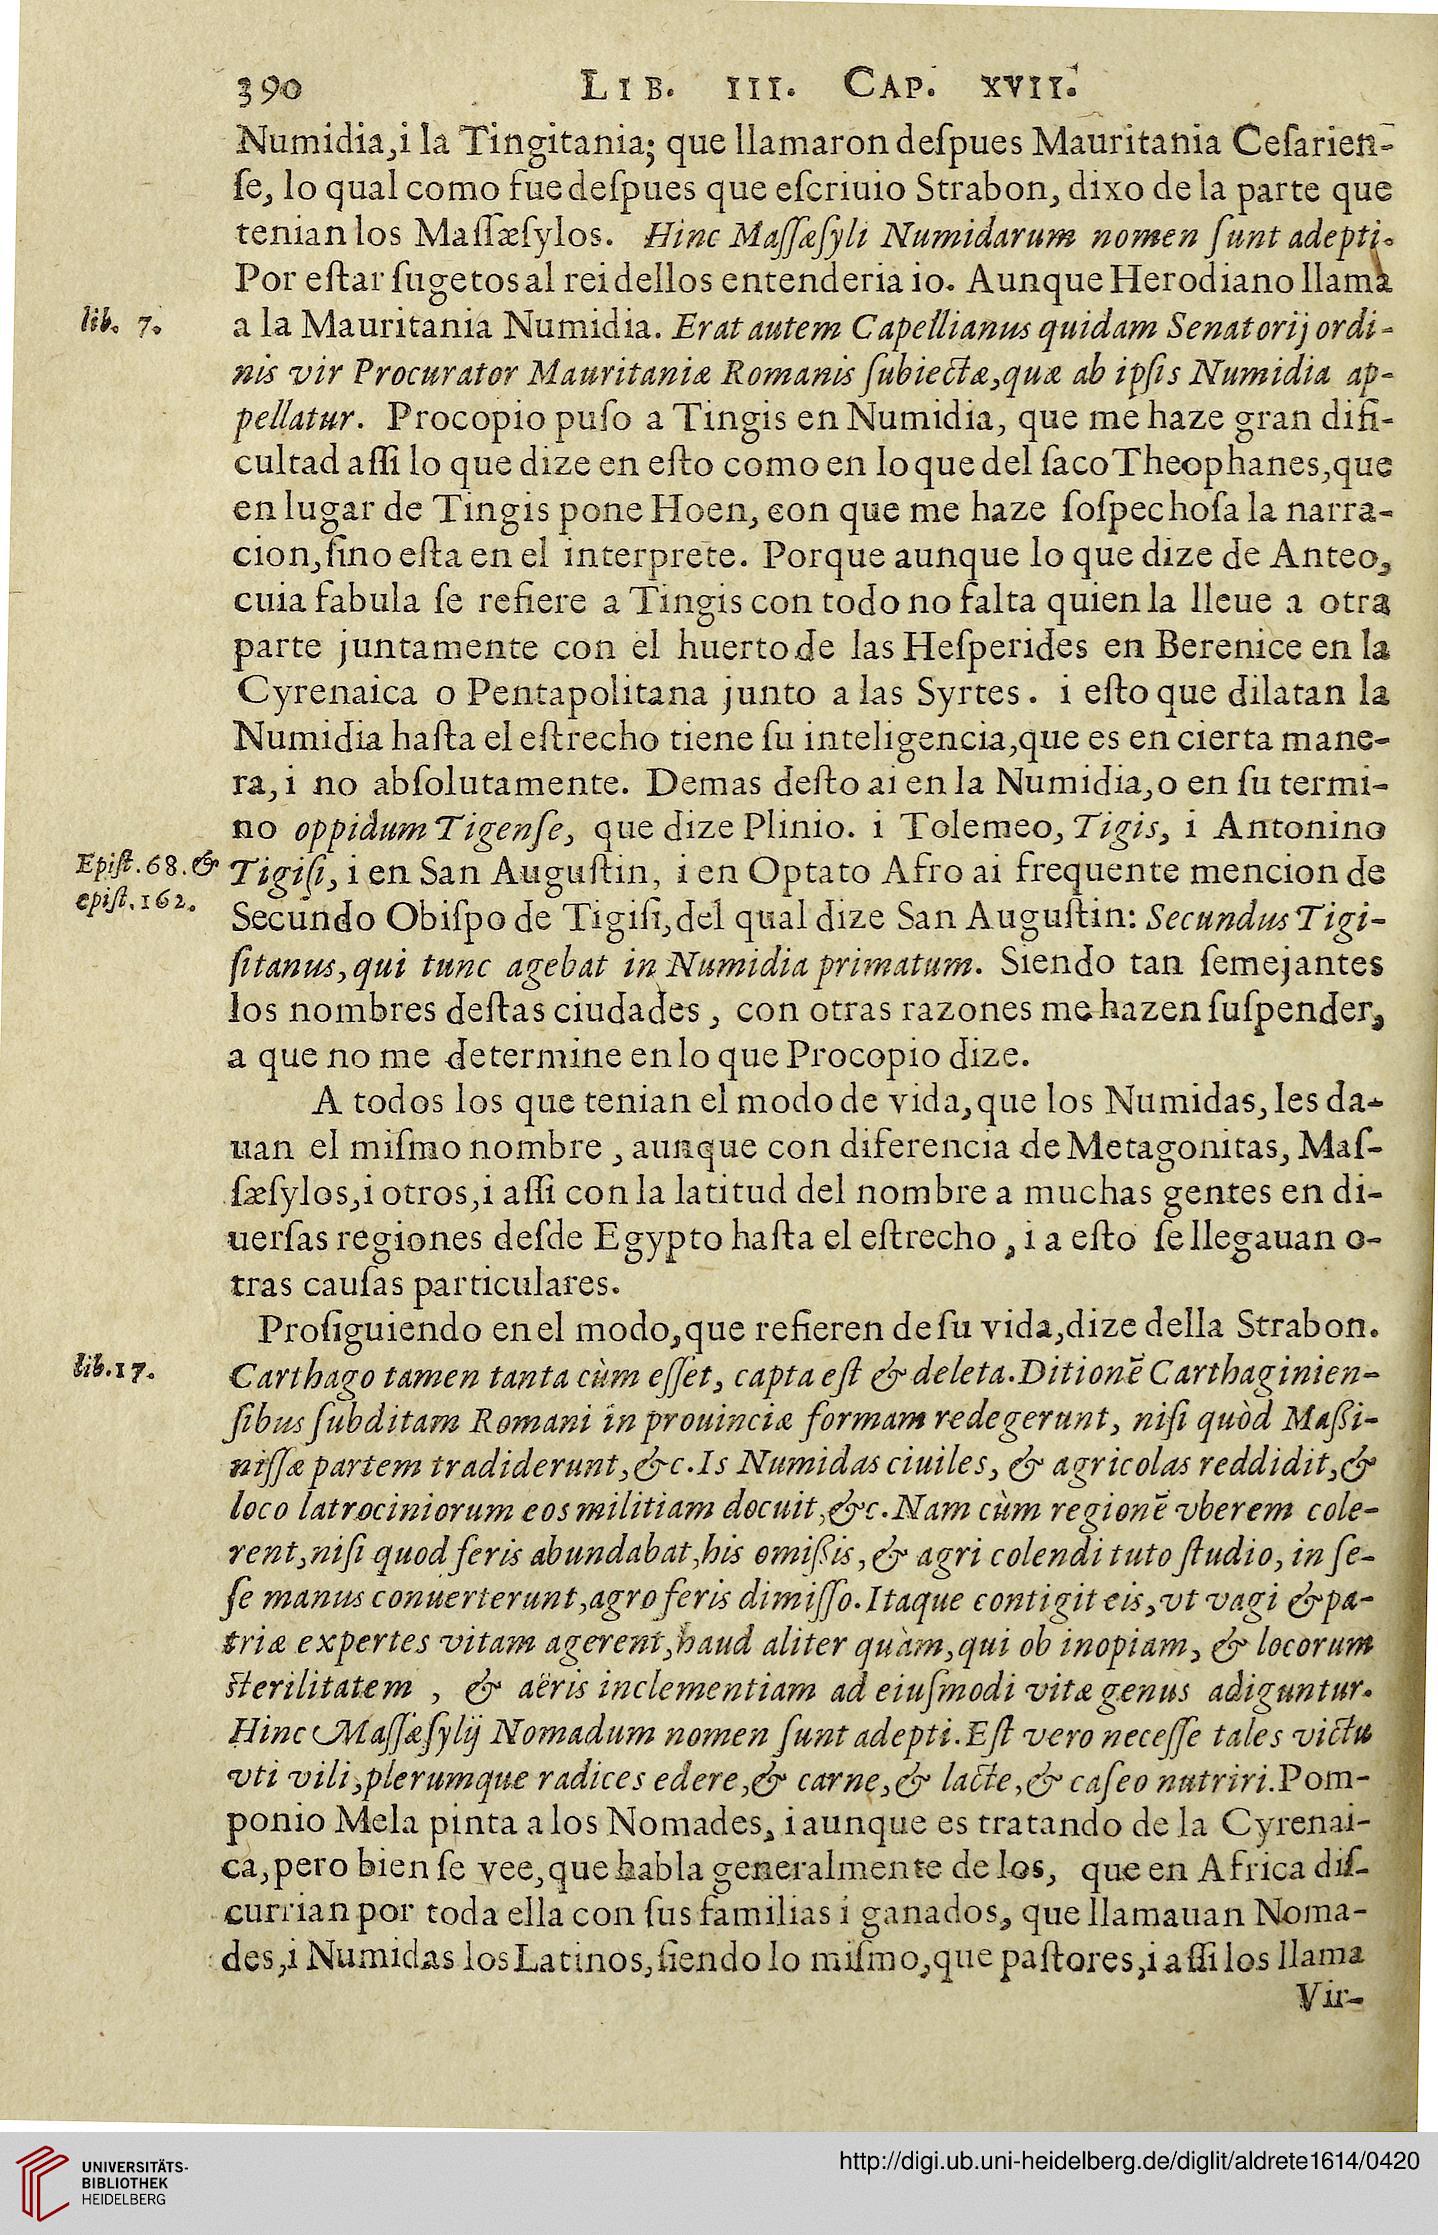 390 LIB. III. CAP. XVII.
Numidia,i la Tingitania; que llamaron deſpues Mauritania Ceſarien-
ſe, lo qual como fue deſpues que eſcriuio Strabon, dixo de la parte que
tenian los Maſſæſylos. Hinc Maſſæſyli Numidarum nomen ſunt adepti.
Por eſtar ſugetos al rei dellos entenderia io. Aunque Herodiano llama
lib. 7. a la Mauritania Numidia. Erat autem Capellianus quidam Senatorij ordi-
nis vir Procurator Mauritaniæ Romanis ſubiectæ,quæ ab ipſis Numidia ap-
pellatur. Procopio puſo a Tingis en Numidia, que me haze gran difi-
cultad aſſi lo que dize en eſto como en lo que del ſaco Theophanes,que
en lugar de Tingis pone Hoen, con que me haze ſoſpechoſa la narra-
cion,ſino eſta en el interprete. Porque aunque lo que dize de Anteo,
cuia fabula ſe refiere a Tingis con todo no falta quien la lleue a otra
parte juntamente con el huerto de las Heſperides en Berenice en la
Cyrenaica o Pentapolitana junto a las Syrtes. i eſto que dilatan la
Numidia haſta el eſtrecho tiene ſu inteligencia,que es en cierta mane-
ra,i no abſolutamente. Demas deſto ai en la Numidia,o en ſu termi-
no oppidum Tigenſe, que dize Plinio. i Tolemeo, Tigis, i Antonino
Epiſt.68.& Tigiſi, i en San Auguſtin, i en Optato Afro ai frequente mencion de
epiſt.162. Secundo Obiſpo de Tigiſi,del qual dize San Auguſtin: Secundus Tigi-
ſitanus,qui tunc agebat in Numidia primatum. Siendo tan ſemejantes
los nombres deſtas ciudades, con otras razones me hazen ſuſpender,
a que no me determine en lo que Procopio dize.
A todos los que tenian el modo de vida,que los Numidas, les da-
uan el miſmo nombre, aunque con diferencia de Metagonitas, Maſ-
ſæſylos,i otros,i aſſi con la latitud del nombre a muchas gentes en di-
uerſas regiones deſde Egypto haſta el eſtrecho, i a eſto ſe llegauan o-
tras cauſas particulares.
Proſiguiendo en el modo,que refieren de ſu vida,dize della Strabon.
lib.17. Carthago tamen tanta cùm eſſet, capta eſt & deleta. Ditionē Carthaginien-
ſibus ſubditam Romani in prouinciæ formam redegerunt, niſi quòd Maßi-
niſſæ partem tradiderunt,&c. Is Numidas ciuiles, & agricolas reddidit,&
loco latrociniorum eos militiam docuit,&c. Nam cùm regionē vberem cole-
rent,niſi quod feris abundabat,his omißis,& agri colendi tuto ſtudio, in ſe-
ſe manus conuerterunt,agro feris dimiſſo. Itaque contigit eis,vt vagi & pa-
triæ expertes vitam agerent,haud aliter quàm,qui ob inopiam, & locorum
ſterilitatem, & aëris inclementiam ad eiuſmodi vitæ genus adiguntur.
Hinc Maſſæſylij Nomadum nomen ſunt adepti. Eſt vero neceſſe tales victu
vti vili,plerumque radices edere,& carne,& lacte,& caſeo nutriri. Pom-
ponio Mela pinta a los Nomades, i aunque es tratando de la Cyrenai-
ca,pero bien ſe vee,que habla generalmente de los, que en Africa diſ-
currian por toda ella con ſus familias i ganados, que llamauan Noma-
des,i Numidas los Latinos,ſiendo lo miſmo,que paſtores,i aſſi los llama
Vir-
UNIVERSITÄTS-
BIBLIOTHEK
HEIDELBERG
http://digi.ub.uni-heidelberg.de/diglit/aldrete1614/0420